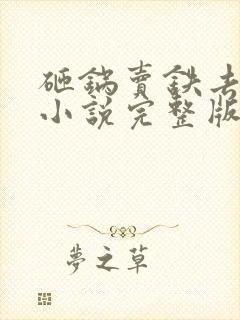 砸鍋賣鉄去
小說完整版
夢之草